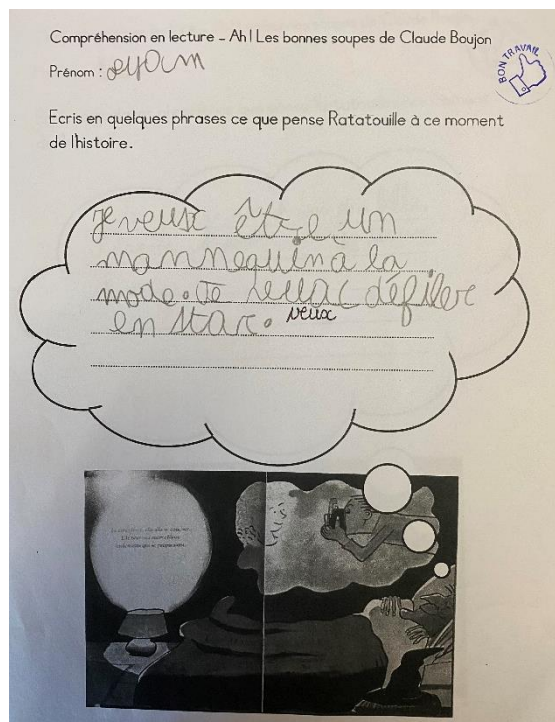 Compréhension en lecture – Ah! Les bonnes soupes de Claude Boujon
BON TRAVAIL
Prénom :
Ecris en quelques phrases ce que pense Ratatouille à ce moment
de l'histoire.
je veux être un
mannequin à la
mode. Je veux défiler
en star. veux